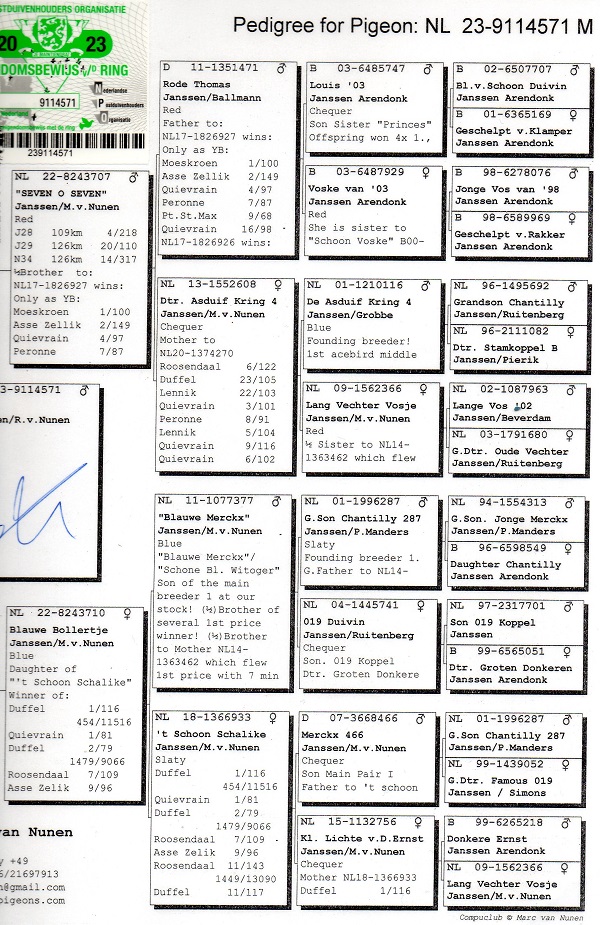 STDUIVENHOUDERS ORGANISATIE
20 23
DOMSBEWIJS V/D RING
Nederlandse
9114571
Postduivenhouders
Organisatie
239114571
Pedigree for Pigeon: NL 23-9114571 M
NL 22-8243707 ♂
"SEVEN O SEVEN"
Janssen/M.v.Nunen
Red
J28 109km 4/218
J29 126km 20/110
N34 126km 14/317
½Brother to:
NL17-1826927 wins:
Only as YB:
Moeskroen 1/100
Asse Zellik 2/149
Quievrain 4/97
Peronne 7/87
3-9114571 ♂
en/R.v.Nunen
NL 22-8243710 ♀
Blauwe Bollertje
Janssen/M.v.Nunen
Blue
Daughter of
"'t Schoon Schalike"
Winner of:
Duffel 1/116
454/11516
Quievrain 1/81
Duffel 2/79
1479/9066
Roosendaal 7/109
Asse Zelik 9/96
van Nunen
y +49
6/21697913
n@gmail.com
pigeons.com
D 11-1351471 ♂
Rode Thomas
Janssen/Ballmann
Red
Father to:
NL17-1826927 wins:
Only as YB:
Moeskroen 1/100
Asse Zellik 2/149
Quievrain 4/97
Peronne 7/87
Pt.St.Max 9/68
Quievrain 16/98
NL17-1826926 wins:
NL 13-1552608 ♀
Dtr. Asduif Kring 4
Janssen/M.v.Nunen
Chequer
Mother to
NL20-1374270
Roosendaal 6/122
Duffel 23/105
Lennik 22/103
Quievrain 3/101
Peronne 8/91
Lennik 5/104
Quievrain 9/116
Quievrain 6/102
NL 11-1077377 ♂
"Blauwe Merckx"
Janssen/M.v.Nunen
Blue
"Blauwe Merckx"/
"Schone Bl. Witoger"
Son of the main
breeder 1 at our
stock! (½)Brother of
several 1st price
winner! (½)Brother
to Mother NL14-
1363462 which flew
1st price with 7 min
NL 18-1366933 ♀
't Schoon Schalike
Janssen/M.v.Nunen
Slaty
Duffel 1/116
454/11516
Quievrain 1/81
Duffel 2/79
1479/9066
Roosendaal 7/109
Asse Zelik 9/96
Roosendaal 11/143
1449/13090
Duffel 11/117
B 03-6485747 ♂
Louis '03
Janssen Arendonk
Chequer
Son Sister "Princes"
Offspring won 4x 1.,
B 03-6487929 ♀
Voske van '03
Janssen Arendonk
Red
She is sister to
"Schoon Voske" B00-
NL 01-1210116 ♂
De Asduif Kring 4
Janssen/Grobbe
Blue
Founding breeder!
1st acebird middle
NL 09-1562366 ♀
Lang Vechter Vosje
Janssen/M.v.Nunen
Red
½ Sister to NL14-
1363462 which flew
NL 01-1996287 ♂
G.Son Chantilly 287
Janssen/P.Manders
Slaty
Founding breeder 1.
G.Father to NL14-
NL 04-1445741 ♀
019 Duivin
Janssen/Ruitenberg
Chequer
Son. 019 Koppel
Dtr. Groten Donkere
D 07-3668466 ♂
Merckx 466
Janssen/M.v.Nunen
Chequer
Son Main Pair I
Father to 't schoon
NL 15-1132756 ♀
Kl. Lichte v.D.Ernst
Janssen/M.v.Nunen
Chequer
Mother NL18-1366933
Duffel 1/116
B 02-6507707 ♂
Bl.v.Schoon Duivin
Janssen Arendonk
B 01-6365169 ♀
Geschelpt v.Klamper
Janssen Arendonk
B 98-6278076 ♂
Jonge Vos van '98
Janssen Arendonk
B 98-6589969 ♀
Geschelpt v.Rakker
Janssen Arendonk
NL 96-1495692 ♂
Grandson Chantilly
Janssen/Ruitenberg
NL 96-2111082 ♀
Dtr. Stamkoppel B
Janssen/Pierik
NL 02-1087963 ♂
Lange Vos '02
Janssen/Beverdam
NL 03-1791680 ♀
G.Dtr. Oude Vechter
Janssen/Ruitenberg
NL 94-1554313 ♂
G.Son. Jonge Merckx
Janssen/P.Manders
B 96-6598549 ♀
Daughter Chantilly
Janssen Arendonk
NL 97-2317701 ♂
Son 019 Koppel
Janssen
B 99-6565051 ♀
Dtr. Groten Donkeren
Janssen Arendonk
NL 01-1996287 ♂
G.Son Chantilly 287
Janssen/P.Manders
NL 99-1439052 ♀
G.Dtr. Famous 019
Janssen / Simons
B 99-6265218 ♂
Donkere Ernst
Janssen Arendonk
NL 09-1562366 ♀
Lang Vechter Vosje
Janssen/M.v.Nunen
Compuclub © Marc van Nunen